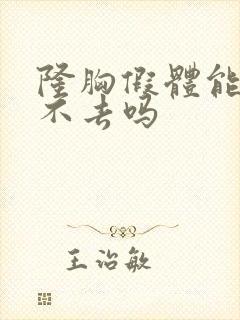 隆胸假體能
不去吗
王治敏